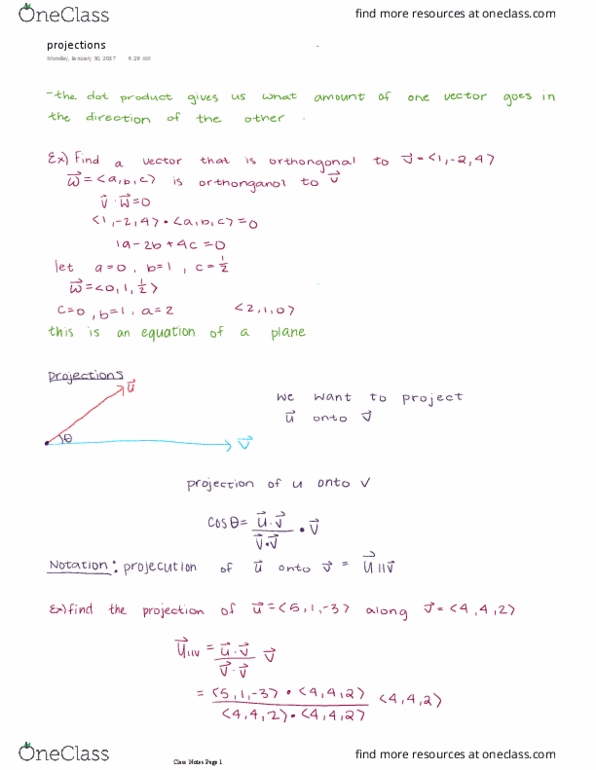 OneClass
find more resources at oneclass.com
projections
Monday, January 30, 2017 9:29 AM
-the dot product gives us what amount of one vector goes in
the direction of the other.
Ex) Find a vector that is orthongonal to v⃗=<1,-2,4>
w⃗=<a,b,c> is orthonganol to v⃗
v⃗·w⃗=0
<1,-2,4>·<a,b,c>=0
1a-2b+4c=0
let a=0, b=1, c=1/2
w⃗=<0,1,1/2>
c=0, b=1, a=2 <2,1,0>
this is an equation of a plane
projections
u⃗
we want to project
u⃗ onto v⃗
θ
v⃗
projection of u onto v
cosθ= u⃗·v⃗ / v⃗·v⃗ • v⃗
Notation: projecution of u⃗ onto v⃗ = u⃗||v⃗
Ex) find the projection of u⃗=<5,1,-3> along v⃗=<4,4,2>
u⃗||v = u⃗·v⃗ / v⃗·v⃗ v⃗
= <5,1,-3>•<4,4,2> / <4,4,2>•<4,4,2> <4,4,2>
OneClass
Class Notes Page 1
find more resources at oneclass.com